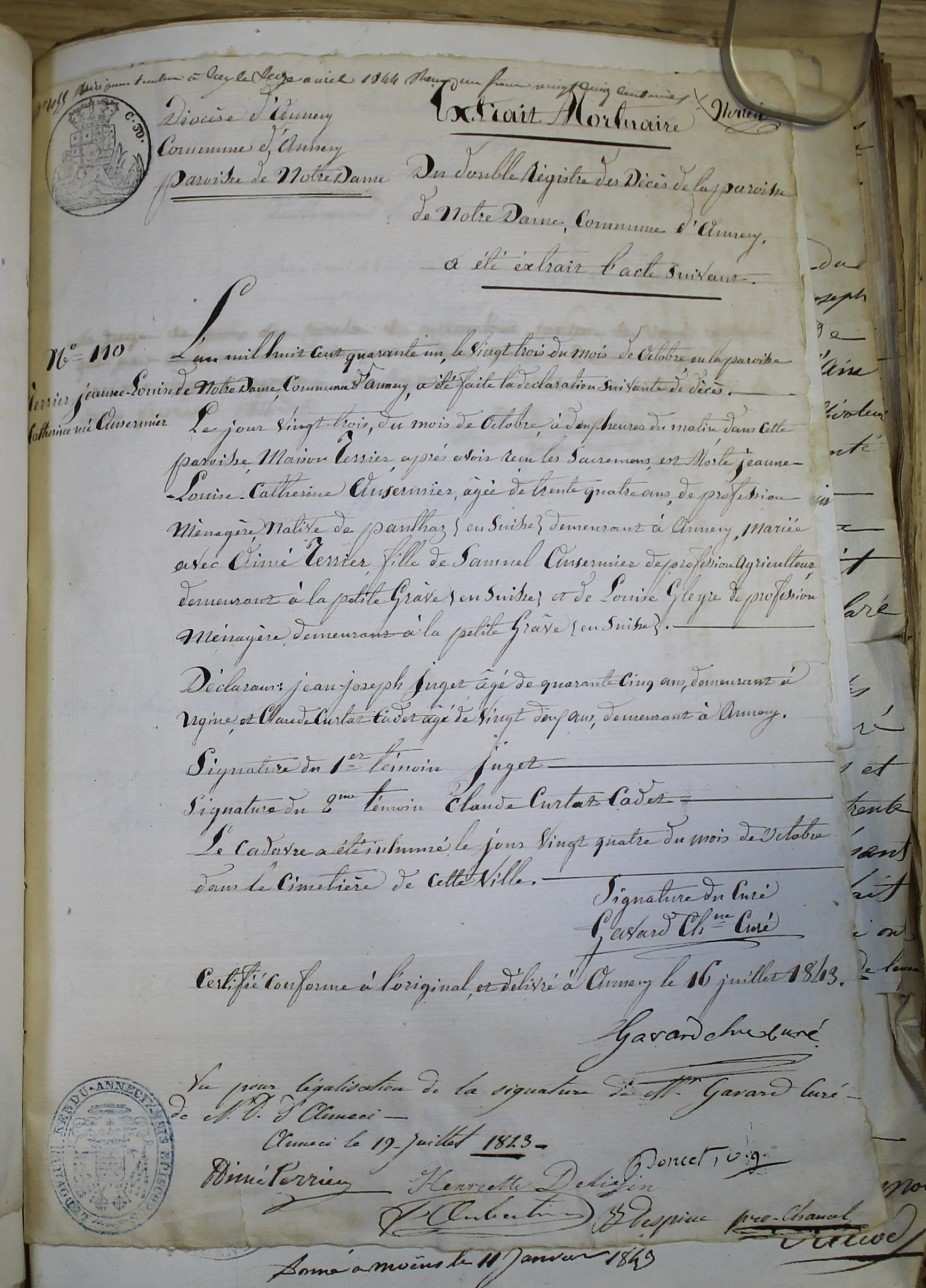 avril 1844
Diocèse d'Annecy
Commune d'Annecy
paroisse de Notre Dame
C. 30.
Extrait Mortuaire
Du double Régistre des Décès de la paroisse
de Notre Dame, Commune d'Annecy,
a été éxtrait l'acte Suivant.
N° 110
Terrier jeanne-Louise
Catherine née Ansermier
L'an mil huit cent quarante un, le Vingt trois du mois de Octobre en la paroisse
de Notre Dame, Commune d'Annecy, a été faite la déclaration Suivante de décès.
Le jour Vingt-trois, du mois de Octobre, à deux heures du matin, dans cette
paroisse, Maison Terrier, après avoir reçu les Sacremens, est Morte jeanne-
Louise-Catherine Ansermier, âgée de trente quatre ans, de profession
Ménagère, Native de panthaz {en Suisse} demeurant à Annecy, Mariée
avec Aimé Terrier, fille de Samuel Ansermier de profession Agriculteur
demeurant à la petite Grâve {en Suisse} et de Louise Gleyre de profession
Ménagère demeurant à la petite Grâve {en Suisse}.
Déclarans: jean-joseph juget âgé de quarante Cinq ans, demeurant à
Ugine, et Claude Curtat Cadet âgé de Vingt deux ans, demeurant à Annecy.
Signature du 1er témoin juget
Signature du 2me témoin Claude Curtat Cadet
Le Cadavre a été inhumé le jour Vingt quatre du mois de Octobre
dans le Cimetière de cette Ville.
Signature du Curé
Gavard Chne Curé
Certifié Conforme à l'original, et délivré à Annecy le 16 juillet 1843.
Gavard chne curé
Vu pour légalisation de la signature de Mr Gavard Curé
de N. D. d'Anneci
Anneci le 19 juillet 1843
Poncet, v. g.
Aimé Terrier
Henriette
Despine pro-Chanal
Donné à moëns le 11 Janvier 1849